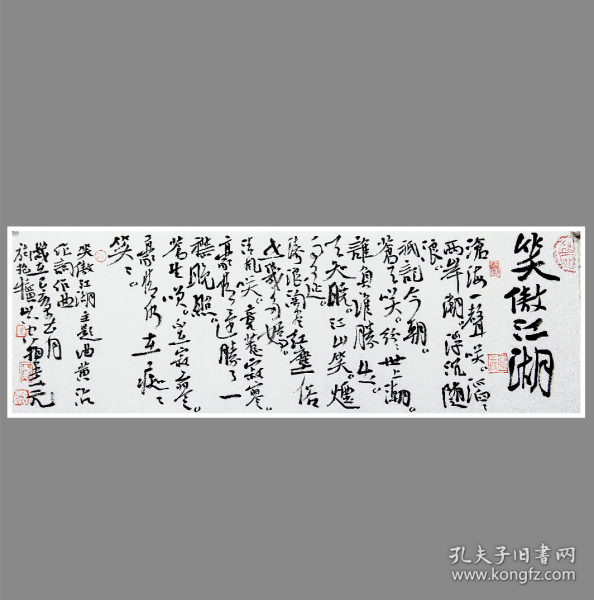 笑傲江湖
滄海一聲笑。滔〻
兩岸潮。浮沉隨
浪。
祇記今朝。
蒼天笑。紛〻世上潮。
誰負誰勝出。
天知曉。江山笑。煙
雨遙。
濤浪淘盡紅塵俗
世幾多嬌。
清風笑。竟惹寂寥。
豪情還勝了一
襟晚照。
蒼生笑。不再寂寥。
豪情仍在癡〻
笑〻。
笑傲江湖主題曲黄沾
作詞作曲
歲在己亥年五月
一元
孔夫子旧书网
www.kongfz.com